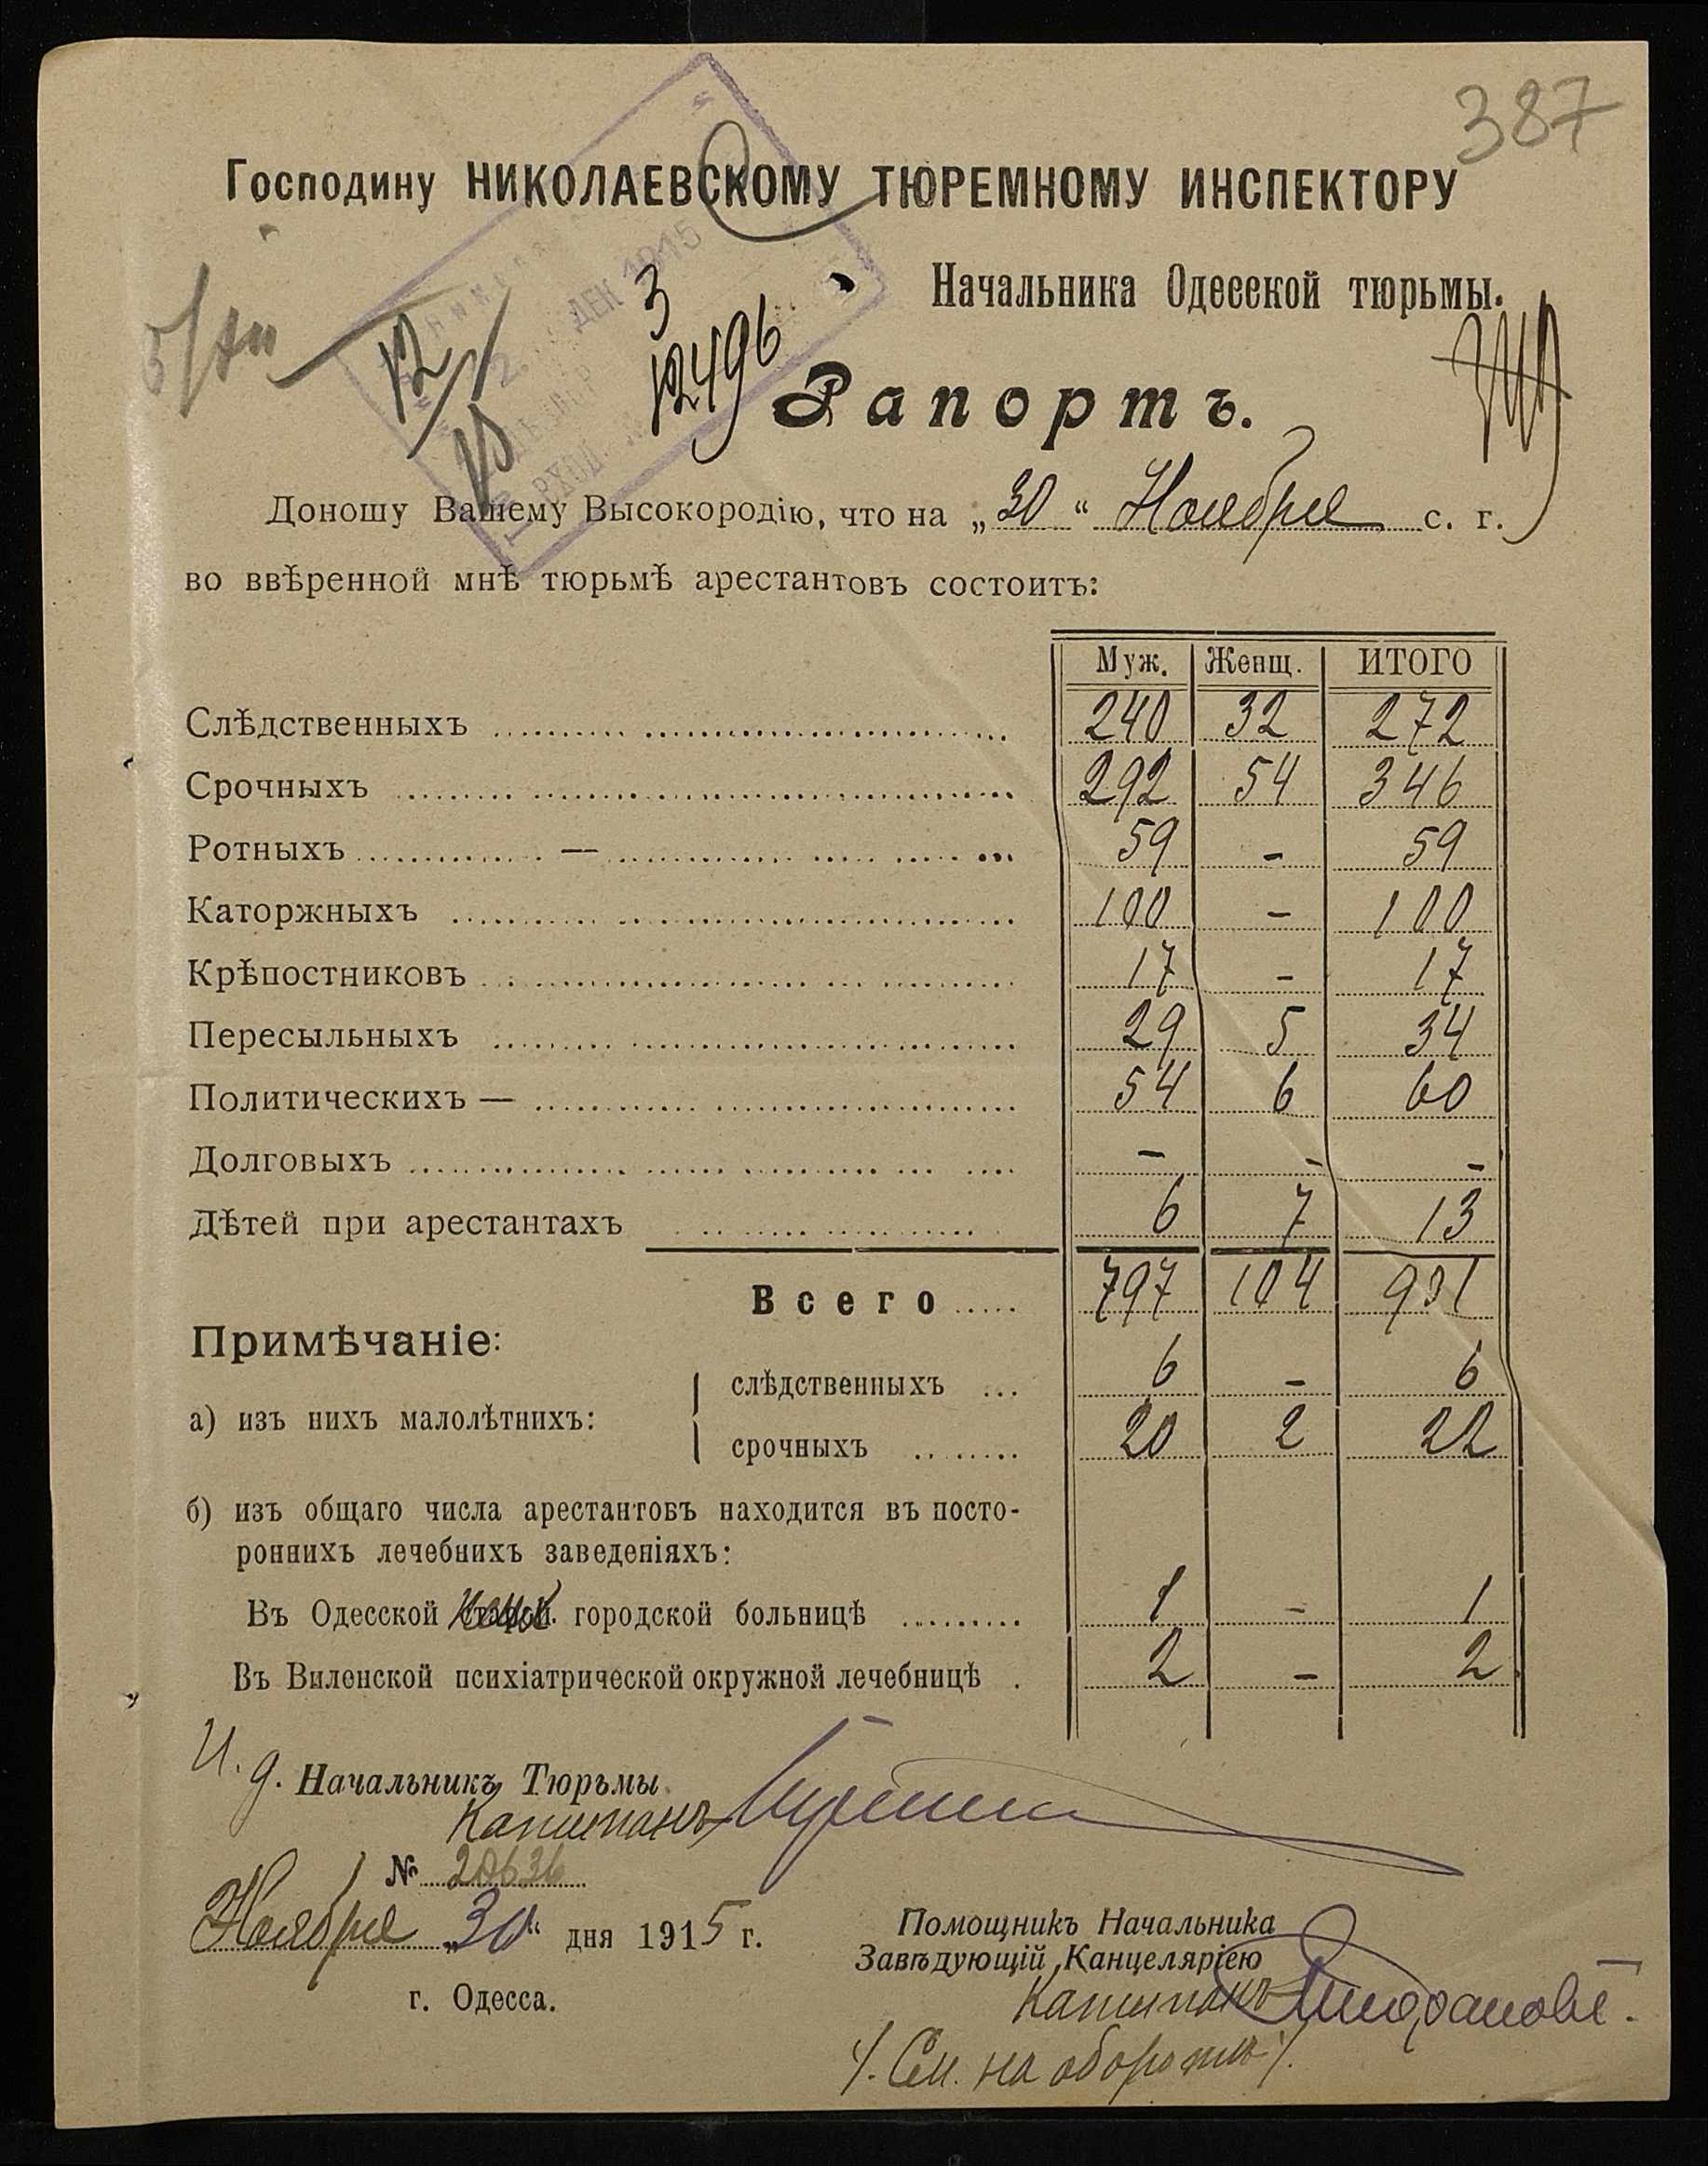 387
Господину НИКОЛАЕВСКОМУ ТЮРЕМНОМУ ИНСПЕКТОРУ
Начальника Одесской тюрьмы.
2. ДЕК 1915
ВХОД.
3
12496
12/1
Рапортъ.
Доношу Вашему Высокородію, что на „30“ Ноября с. г.
во ввѣренной мнѣ тюрьмѣ арестантовъ состоитъ:
Муж. Женщ. ИТОГО
Слѣдственныхъ 240 32 272
Срочныхъ 292 54 346
Ротныхъ — 59 - 59
Каторжныхъ 100 - 100
Крѣпостниковъ 17 - 17
Пересыльныхъ 29 5 34
Политическихъ — 54 6 60
Долговыхъ - - -
Дѣтей при арестантахъ 6 7 13
Всего 797 104 901
Примѣчаніе:
а) изъ нихъ малолѣтнихъ:
слѣдственныхъ 6 - 6
срочныхъ 20 2 22
б) изъ общаго числа арестантовъ находится въ посто-
роннихъ лечебнихъ заведеніяхъ:
Въ Одесской городской больницѣ 1 - 1
Въ Виленской психіатрической окружной лечебницѣ 2 - 2
И. д. Начальникъ Тюрьмы
Капитанъ
№ 20636
Ноября „30“ дня 1915 г.
г. Одесса.
Помощникъ Начальника
Завѣдующій Канцеляріею
Капитанъ
/. См. на оборотѣ /.